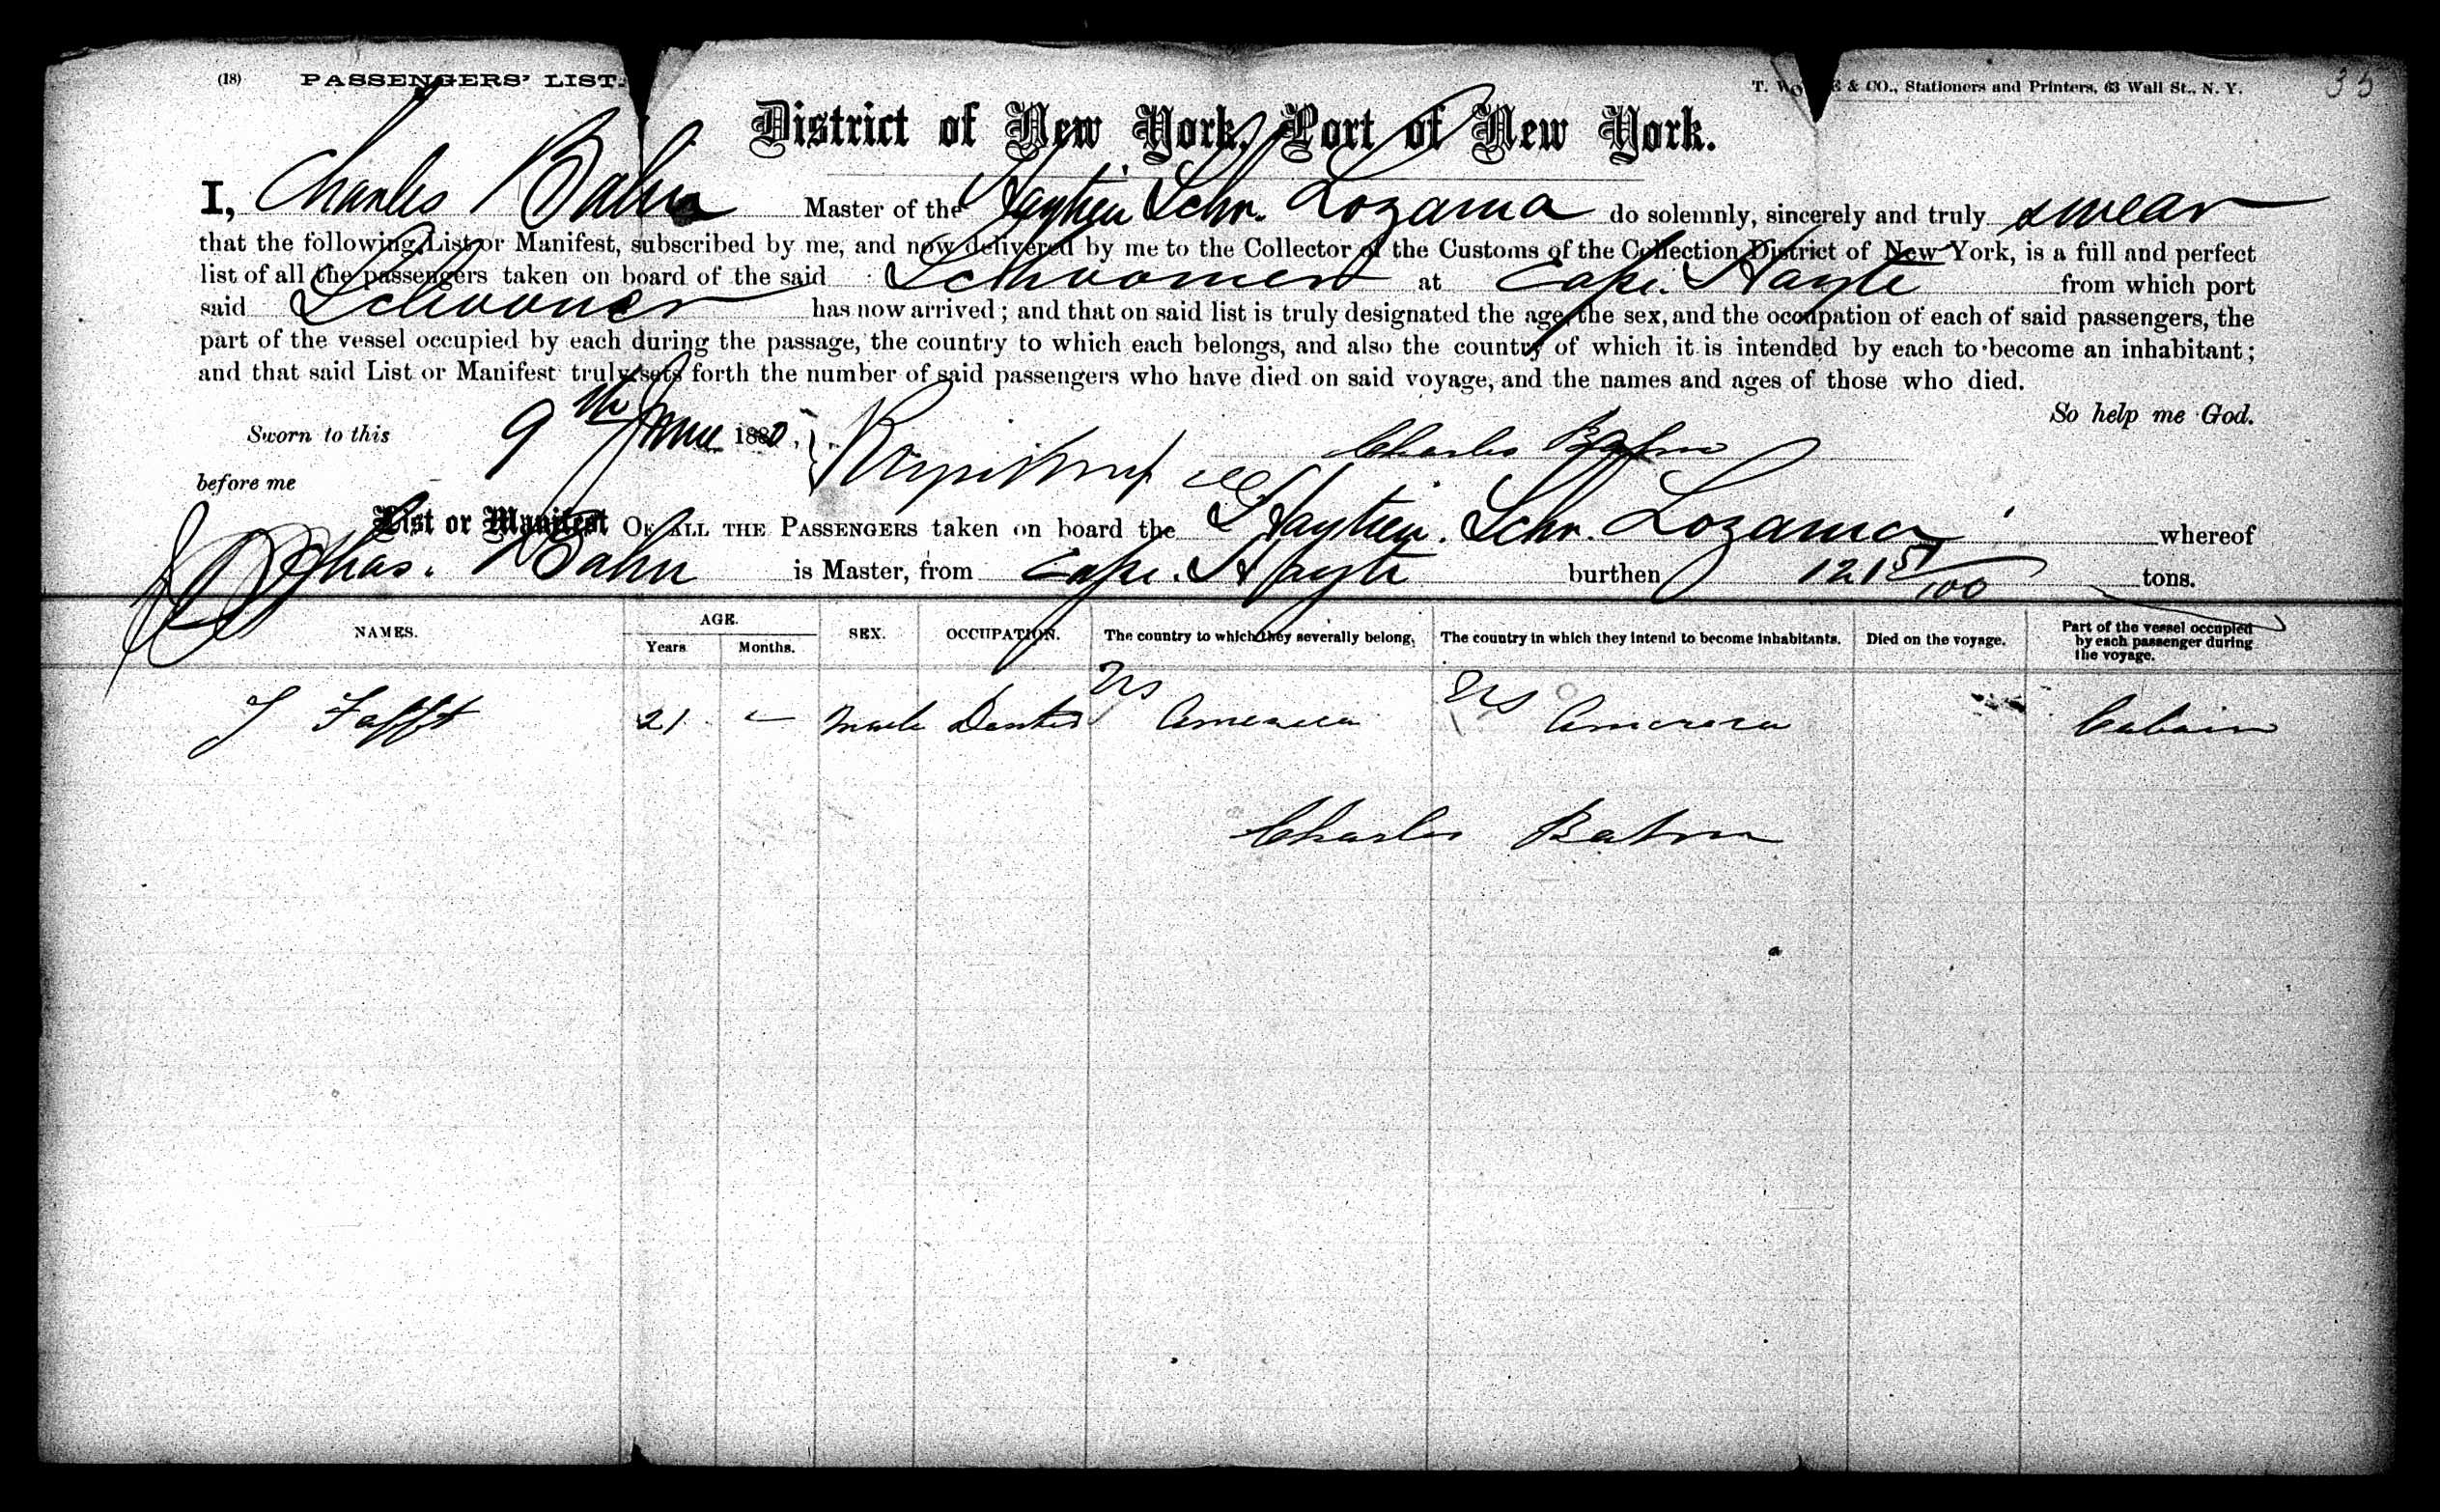 (18) PASSENGERS' LIST.
T. & CO., Stationers and Printers, 63 Wall St., N. Y.
35
District of New York, Port of New York.
I, Charles Bahn Master of the Haytien Schr. Lozama do solemnly, sincerely and truly swear
that the following List or Manifest, subscribed by me, and now delivered by me to the Collector of the Customs of the Collection District of New York, is a full and perfect
list of all the passengers taken on board of the said Schooner at Cape. Hayte from which port
said Schooner has now arrived; and that on said list is truly designated the age, the sex, and the occupation of each of said passengers, the
part of the vessel occupied by each during the passage, the country to which each belongs, and also the country of which it is intended by each to become an inhabitant;
and that said List or Manifest truly sets forth the number of said passengers who have died on said voyage, and the names and ages of those who died.
So help me God.
Sworn to this 9th June 1880,
Charles Bahn
before me
List or Manifest OF ALL THE PASSENGERS taken on board the Haytien. Schr. Lozama whereof
Chas. Bahn is Master, from Cape. Hayte burthen 121 51/100 tons.
NAMES. AGE. Years Months. SEX. OCCUPATION. The country to which they severally belong. The country in which they intend to become inhabitants. Died on the voyage. Part of the vessel occupied by each passenger during the voyage.
J Tafft 21 - Male Dentist US America US America Cabain
Charles Bahn